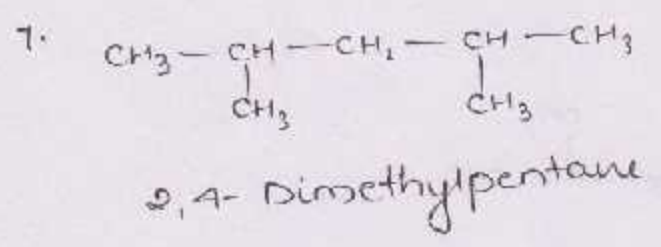 7.
CH₃ — CH — CH₂ — CH — CH₃
CH₃ CH₃
2,4- Dimethylpentane